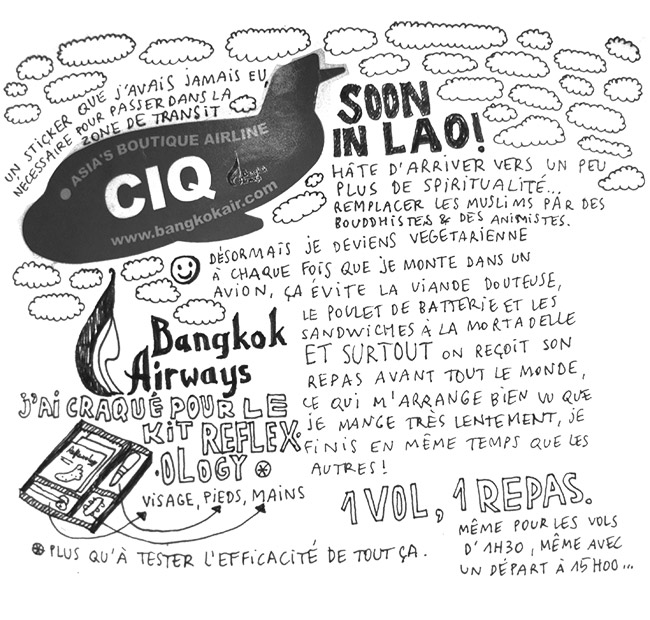 UN STICKER QUE J'AVAIS JAMAIS EU
NÉCESSAIRE POUR PASSER DANS LA
ZONE DE TRANSIT
ASIA'S BOUTIQUE AIRLINE
CIQ
www.bangkokair.com
SOON
IN LAO!
HÂTE D'ARRIVER VERS UN PEU
PLUS DE SPIRITUALITÉ...
REMPLACER LES MUSLIMS PAR DES
BOUDDHISTES & DES ANIMISTES.
DÉSORMAIS JE DEVIENS VEGETARIENNE
À CHAQUE FOIS QUE JE MONTE DANS UN
AVION, ÇA ÉVITE LA VIANDE DOUTEUSE,
LE POULET DE BATTERIE ET LES
SANDWICHES À LA MORTADELLE
ET SURTOUT ON REÇOIT SON
REPAS AVANT TOUT LE MONDE,
CE QUI M'ARRANGE BIEN VU QUE
JE MANGE TRÈS LENTEMENT, JE
FINIS EN MÊME TEMPS QUE LES
AUTRES!
Bangkok
Airways
J'AI CRAQUÉ POUR LE
KIT REFLEX
•OLOGY
VISAGE, PIEDS, MAINS
1 VOL, 1 REPAS.
MÊME POUR LES VOLS
D'1H30, MÊME AVEC
UN DÉPART À 15H00...
PLUS QU'À TESTER L'EFFICACITÉ DE TOUT ÇA.